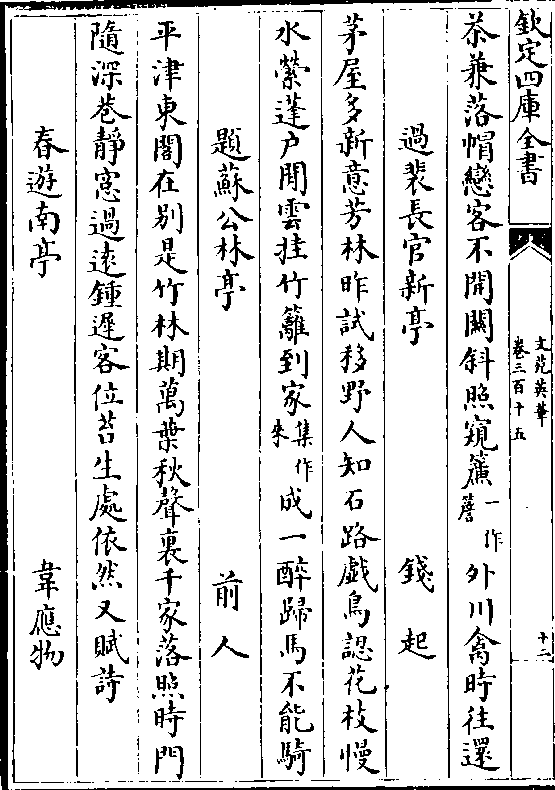 欽定四庫全書
文苑英華
卷三百十五
十二
茶兼落帽戀客不開關斜照窺簾一作簷外川禽時往還
過裴長官新亭 錢起
茅屋多新意芳林昨試移野人知石路戲鳥認花枝慢
水縈蓬戶閒雲挂竹籬到家集作來成一醉歸馬不能騎
題蘇公林亭 前人
平津東閣在別是竹林期萬葉秋聲裏千家落照時門
隨深巷靜窓過遠鍾遲客位苔生處依然又賦詩
春遊南亭 韋應物